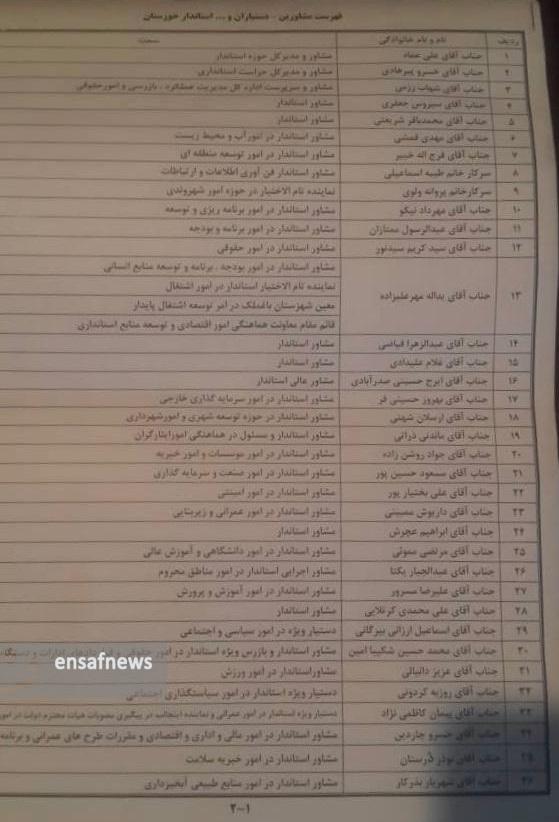 فهرست مشاورین - دستیاران و ... استاندار خوزستان
ردیف نام و نام خانوادگی سمت
۱ جناب آقای علی عماد مشاور و مدیرکل حوزه استاندار
۲ جناب آقای خسرو پیرهادی مشاور و مدیرکل حراست استانداری
۳ جناب آقای شهاب رزمی مشاور و سرپرست اداره کل مدیریت عملکرد ، بازرسی و امورحقوقی
۴ جناب آقای سیروس جعفری مشاور استاندار
۵ جناب آقای محمدباقر شریعتی مشاور استاندار
۶ جناب آقای مهدی قمشی مشاور استاندار در امور آب و محیط زیست
۷ جناب آقای فرج اله خبیر مشاور استاندار در امور توسعه منطقه ای
۸ سرکار خانم طیبه اسماعیلی مشاور استاندار فن آوری اطلاعات و ارتباطات
۹ سرکارخانم پروانه ولوی نماینده تام الاختیار در حوزه امور شهروندی
۱۰ جناب آقای مهرداد نیکو مشاور استاندار در امور برنامه ریزی و توسعه
۱۱ جناب آقای عبدالرسول ممتازان مشاور استاندار در امور برنامه و بودجه
۱۲ جناب آقای سید کریم سیدنور مشاور استاندار در امور حقوقی
۱۳ جناب آقای یداله مهرعلیزاده مشاور استاندار در امور بودجه ، برنامه و توسعه منابع انسانی
نماینده تام الاختیار استاندار در امور اشتغال
معین شهرستان باغملک در امر توسعه اشتغال پایدار
قائم مقام معاونت هماهنگی امور اقتصادی و توسعه منابع استانداری
۱۴ جناب آقای عبدالزهرا فیاضی مشاور استاندار
۱۵ جناب آقای غلام علیدادی مشاور استاندار
۱۶ جناب آقای ایرج حسینی صدرآبادی مشاور عالی استاندار
۱۷ جناب آقای بهروز حسینی فر مشاور استاندار در امور سرمایه گذاری خارجی
۱۸ جناب آقای ارسلان شهنی مشاور استاندار در حوزه توسعه شهری و امورشهرداری
۱۹ جناب آقای ماندنی ذراتی مشاور استاندار و مسئول در هماهنگی امورایثارگران
۲۰ جناب آقای جواد روشن زاده مشاور استاندار در امور موسسات و امور خیریه
۲۱ جناب آقای مسعود حسین پور مشاور استاندار در امور صنعت و سرمایه گذاری
۲۲ جناب آقای علی بختیار پور مشاور استاندار در امور امینتی
۲۳ جناب آقای داریوش ممبینی مشاور استاندار در امور عمرانی و زیربنایی
۲۴ جناب آقای ابراهیم عچرش مشاور استاندار
۲۵ جناب آقای مرتضی مموئی مشاور استاندار در امور دانشگاهی و آموزش عالی
۲۶ جناب آقای عبدالجبار یکتا مشاور اجرایی استاندار در امور مناطق محروم
۲۷ جناب آقای علیرضا مسرور مشاور استاندار در امور آموزش و پرورش
۲۸ جناب آقای علی محمدی کربلایی مشاور استاندار
۲۹ جناب آقای اسماعیل ارزانی بیرگانی دستیار ویژه در امور سیاسی و اجتماعی
۳۰ جناب آقای محمد حسین شکیبا امین مشاور و بازرس ویژه استاندار در امور حقوقی و ادارات و
ensafnews
۳۱ جناب آقای عزیز دانیالی مشاوراستاندار در امور ورزش
۳۲ جناب آقای روزبه کردونی دستیار ویژه استاندار در امور سیاستگذاری اجتماعی
۳۳ جناب آقای پیمان کاظمی نژاد دستیار ویژه استاندار در امور عمرانی و نماینده اینجانب در پیگیری مصوبات هیات محترم دولت در امور
۳۴ جناب آقای خسرو چاردین مشاور استاندار در امور مالی و اداری و اقتصادی و مقررات طرح های عمرانی و برنامه
۳۵ جناب آقای نوذر درستان مشاور استاندار در امور خیریه سلامت
۳۶ جناب آقای شهریار بذرکار مشاور استاندار در امور منابع طبیعی آبخیزداری
۲-۱